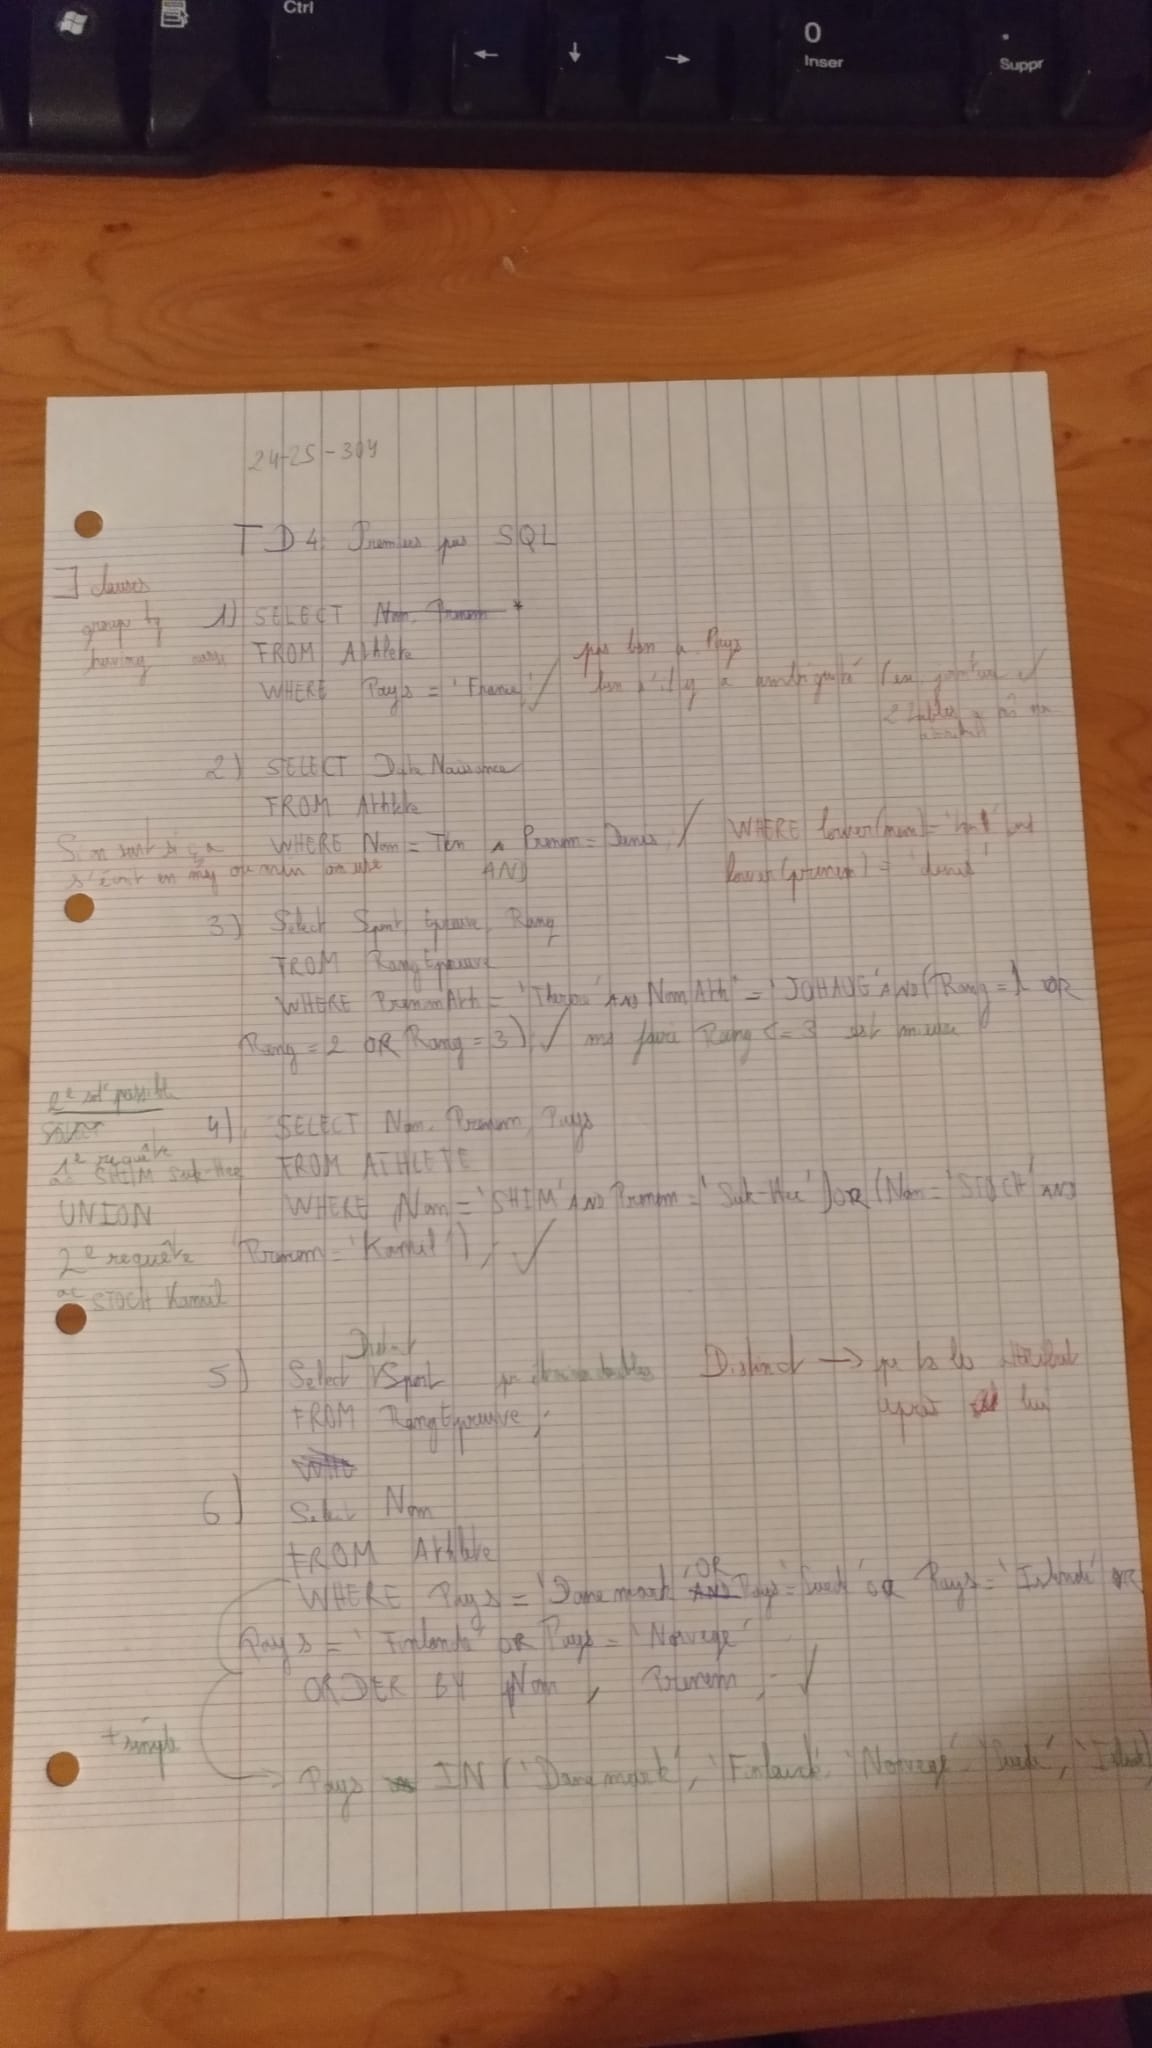 Ctrl
0
Inser
.
Suppr
24-25-304
TD4: Premiers pas SQL
∃ clauses
group by
having aussi
1) SELECT Nom, Prenom *
FROM Athlete
WHERE Pays = 'France' ✓
pas bsn a. Pays
bsn s'il y a ambiguité
2 tables
2) SELECT DateNaissance
FROM Athlete
WHERE Nom = Ten ∧ Prenom = Denis, ✓
AND
Si on sait si ça
s'écrit en maj ou min on use
WHERE lower(nom) = 'ten' and
lower(prenom) = 'denis'
3) Select Sport, Epreuve, Rang
FROM RangEpreuve
WHERE PrenomAth = 'Therese' AND NomAth = 'JOHAUG' AND (Rang = 1 OR
Rang = 2 OR Rang = 3) ✓ ms faire Rang <= 3 est mieux
2e sol° possible
1e requête
ac SHIM Suk-Hee
UNION
2e requête
ac STOCH Kamil
4) SELECT Nom, Prenom, Pays
FROM ATHLETE
WHERE Nom = 'SHIM' AND Prenom = 'Suk-Hee') OR (Nom = 'STOCH' AND
Prenom = 'Kamil')), ✓
Distinct
5) Select Sport
FROM RangEpreuve;
Distinct → pr ts les attributs
après lui
6) Select Nom
FROM Athlete
WHERE Pays = 'Danemark' AND OR Pays = 'Suede' OR Pays = 'Islande' OR
Pays = 'Finlande' OR Pays = 'Norvege'
ORDER BY Nom, Prenom; ✓
+ simple
→ Pays IN ('Danemark', 'Finlande', 'Norvege', 'Suede', 'Islande'